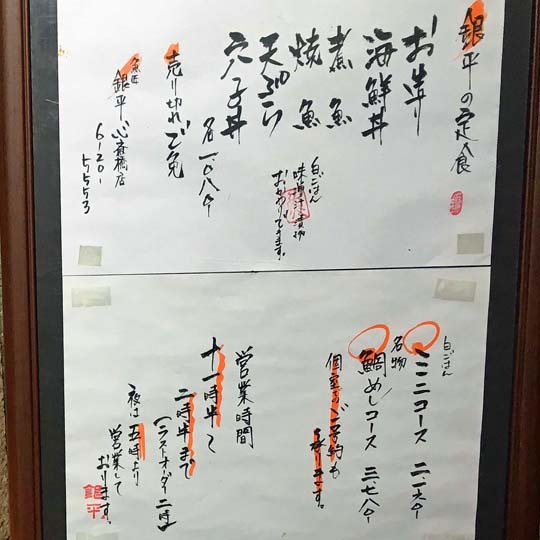 銀平の定食
お造り
海鮮丼
煮魚
焼魚
天ぷら
穴子丼
各一、〇八〇
白ごはん
味噌汁、漬物
おかわりできます。
売り切れご免
魚匠
銀平 心斎橋店
6201-5553
白ごはん
ミニコース 二、一六〇
名物
鯛めしコース 三、七八〇
個室のご予約も
承ります。
営業時間
十一時半〜
二時半まで
(ラストオーダー二時)
夜は五時より
営業して
おります。
銀平